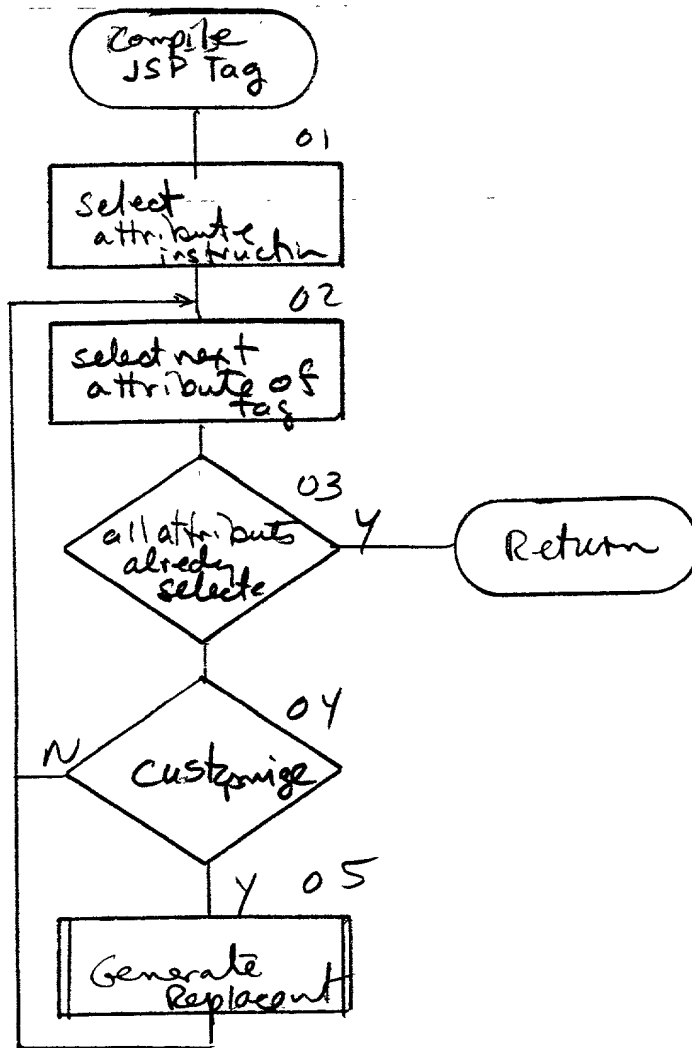 Compile
JSP Tag
01
select
attribute
instructin
02
select next
attribute of
tag
03
all attributs
alredy
selecte
Y
Return
04
N
Customize
Y
05
Generate
Replacent